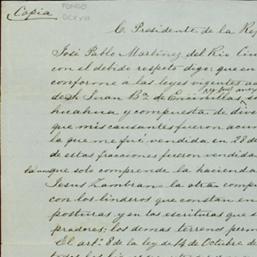 Copia
FONDO
DCXVII
C. Presidente de la Rep
José Pablo Martinez del Rio Ciu
con el debido respeto digo: que en
conforme a las leyes vigentes
de Sn Juan Bta de Encinillas
huahua y compuesta de dive
que mis causantes fueron acum
la que me fué vendida en 28 de
de estas fracciones fueron vendida
que solo comprende la hacienda
Jesus Zambrano la otra comp
con los linderos que constan en
posturas y en las escrituras que
pradores; los demas terrenos perm
El artº 8 de la ley de 14 de Octubre d